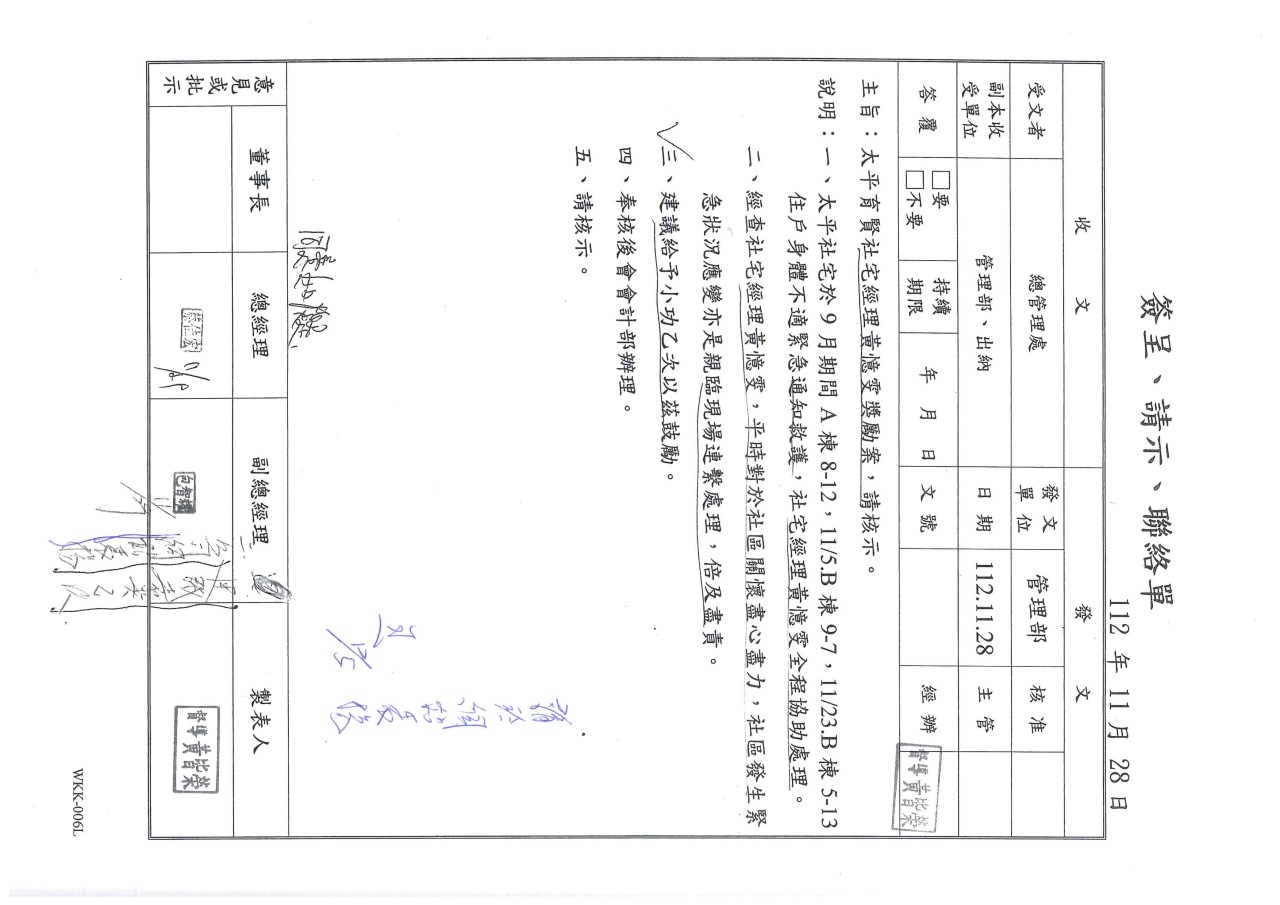 簽呈、請示、聯絡單
112 年 11 月 28 日
收文 發文
受文者 總管理處 發文單位 管理部 核准
副本收受單位 管理部、出納 日期 112.11.28 主管
答覆 □要 □不要 持續期限 年 月 日 文號 經辦
督導黃
主旨：太平育賢社宅經理黃憶雯獎勵案，請核示。
說明：一、太平社宅於 9 月期間 A 棟 8-12，11/5.B 棟 9-7，11/23.B 棟 5-13
住戶身體不適緊急通知救護，社宅經理黃憶雯全程協助處理。
二、經查社宅經理黃憶雯，平時對於社區關懷盡心盡力，社區發生緊
急狀況應變亦是親臨現場連繫處理，倍及盡責。
三、建議給予小功乙次以茲鼓勵。
四、奉核後會會計部辦理。
五、請核示。
意見或批示 董事長 總經理 副總經理 製表人
督導黃
WKK-006L